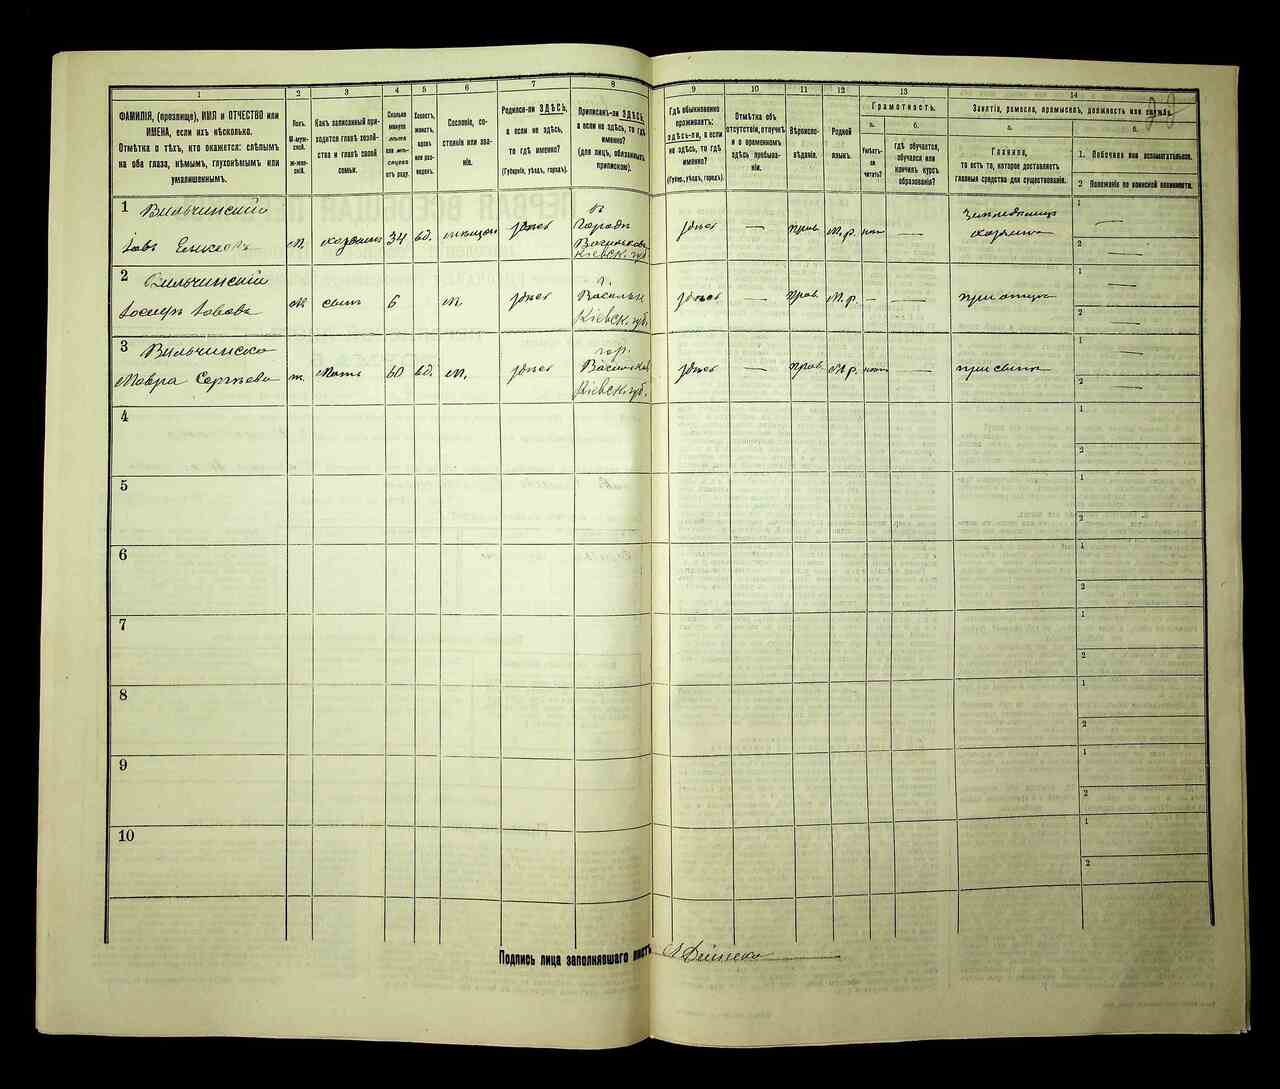 1
2
3
4
5
6
7
8
9
10
11
12
13
14
ФАМИЛІЯ, (прозвище), ИМЯ и ОТЧЕСТВО или
ИМЕНА, если ихъ нѣсколько.
Отмѣтка о тѣхъ, кто окажется: слѣпымъ
на оба глаза, нѣмымъ, глухонѣмымъ или
умалишеннымъ.
Полъ.
М-муж-
ской.
Ж-жен-
скій.
Какъ записанный при-
ходится главѣ хозяй-
ства и главѣ своей
семьи.
Сколько
минуло
лѣтъ
или мѣ-
сяцевъ
отъ роду.
Холостъ,
женатъ,
вдовъ
или раз-
веденъ.
Сословіе, со-
стояніе или зва-
ніе.
Родился-ли ЗДѢСЬ,
а если не здѣсь,
то гдѣ именно?
(Губернія, уѣздъ, городъ).
Приписанъ-ли ЗДѢСЬ,
а если не здѣсь, то гдѣ
именно?
(для лицъ, обязанныхъ
припискою).
Гдѣ обыкновенно
проживаетъ:
ЗДѢСЬ-ли, а если
не здѣсь, то гдѣ
именно?
(Губер., уѣздъ, городъ).
Отмѣтка объ
отсутствіи, отлучкѣ
и о временномъ
здѣсь пребыва-
ніи.
Вѣроиспо-
вѣданіе.
Родной
языкъ.
Грамотность.
а.
Умѣетъ-
ли
читать?
б.
гдѣ обучается,
обучался или
кончилъ курсъ
образованія?
Занятія, ремесло, промыселъ, должность или служба.
а.
Главное,
то есть то, которое доставляетъ
главныя средства для существованія.
б.
1. Побочное или вспомогательное.
2 Положеніе по воинской повинности.
1 Вильчинскій
Іовъ
м. хозяинъ 34 вд. здѣсь
Городъ
Кіевск. губ
здѣсь — прав. М.р. нѣтъ —
хозяинъ
1 —
2 —
2 Вильчинскій
м сынъ 6 м. здѣсь
г.
Кіевск. губ.
здѣсь — прав. М.р. — —
при отцѣ
1 —
2 —
3 Вильчинска
Мавра Сергѣева
ж. мать 60 вд. м. здѣсь
гор.
Кіевск. губ.
здѣсь — прав. М.р. нѣтъ —
при сынѣ
1 —
2 —
4
1
2
5
1
2
6
1
2
7
1
2
8
1
2
9
1
2
10
1
2
Подпись лица заполнявшаго листъ